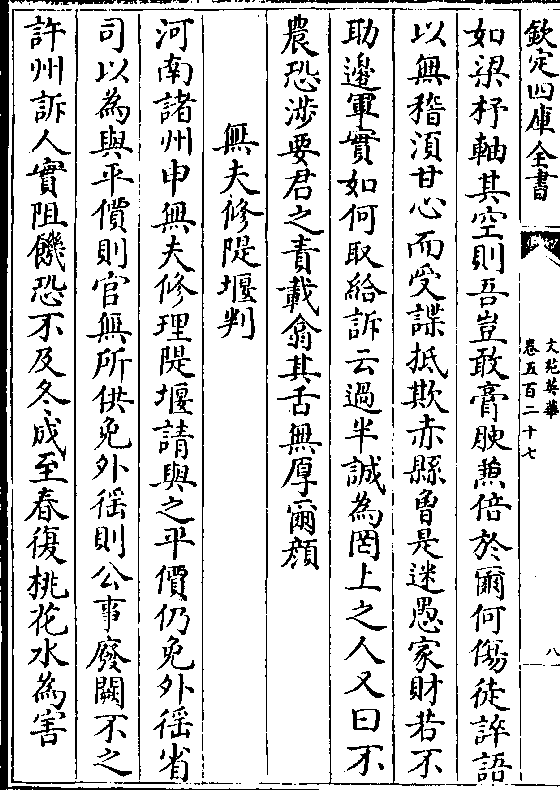 欽定四庫全書
文苑英華
卷五百二十七
八
如梁杼軸其空則吾豈敢膏腴兼倍於爾何傷徒誶語
以無稽湏甘心而受諜抵欺赤縣魯是迷愚家財若不
助邊軍實如何取給訴云過半誠為罔上之人又曰不
農恐涉要君之責載翕其舌無厚爾顔
無夫修隄堰判
河南諸州申無夫修理隄堰請與之平價仍免外徭省
司以為與平價則官無所供免外徭則公事廢闕不之
許州訴人實阻饑恐不及冬成至春復桃花水為害